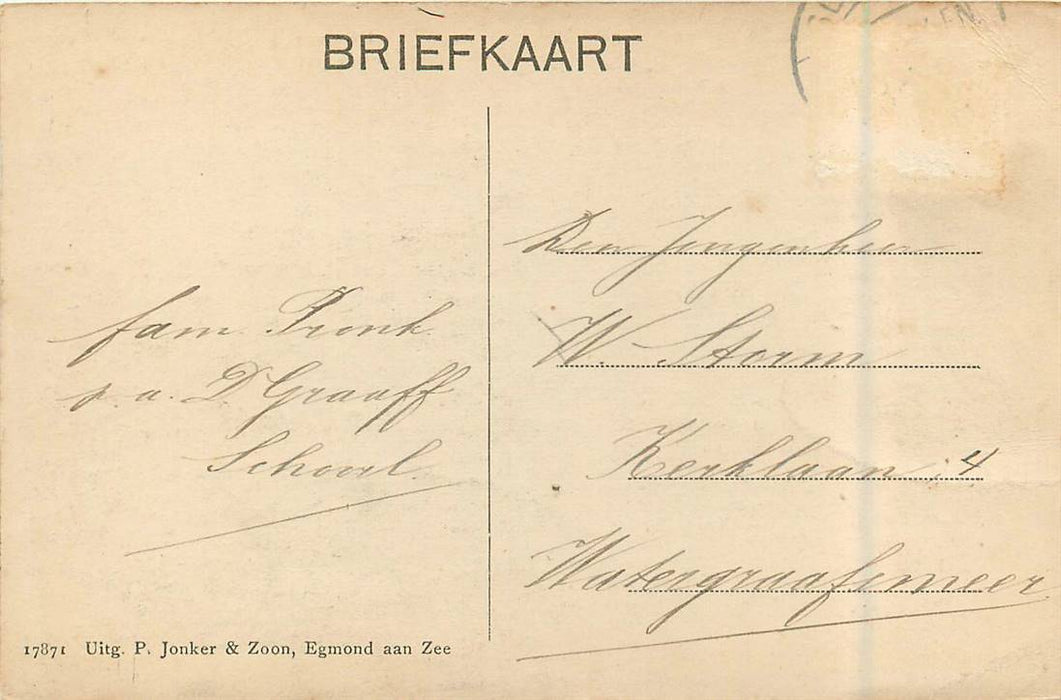 BRIEFKAART
fam Pronk
p. a. D Graaff
Schoorl
Den Jongenheer
W. Storm
Kerklaan 4
Watergraafsmeer
17871 Uitg. P. Jonker & Zoon, Egmond aan Zee